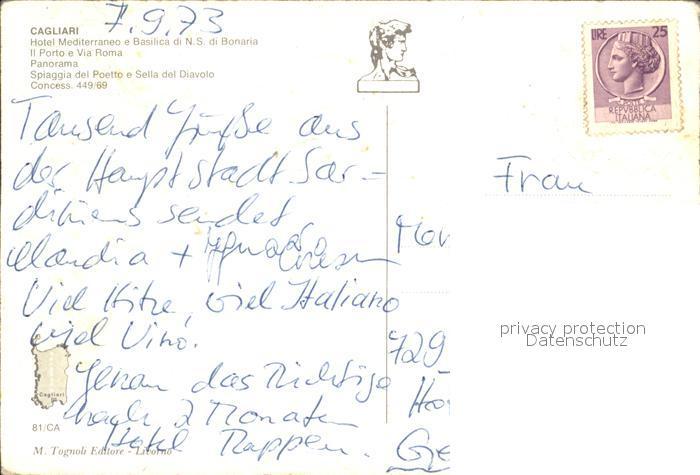 7.9.73
CAGLIARI
Hotel Mediterraneo e Basilica di N.S. di Bonaria
Il Porto e Via Roma
Panorama
Spiaggia del Poetto e Sella del Diavolo
Concess. 449/69
LIRE 25
POSTE
REPVBBLICA
ITALIANA
Tausend Grüße aus
der Hauptstadt Sar-
diniens sendet
Claudia +
Viel Hitze, viel Italiano
viel Vino.
Genau das Richtige
nach 2 Monaten
Hotel Rappen.
Frau
729
privacy protection
Datenschutz
Cagliari
81/CA
M. Tognoli Editore - Livorno